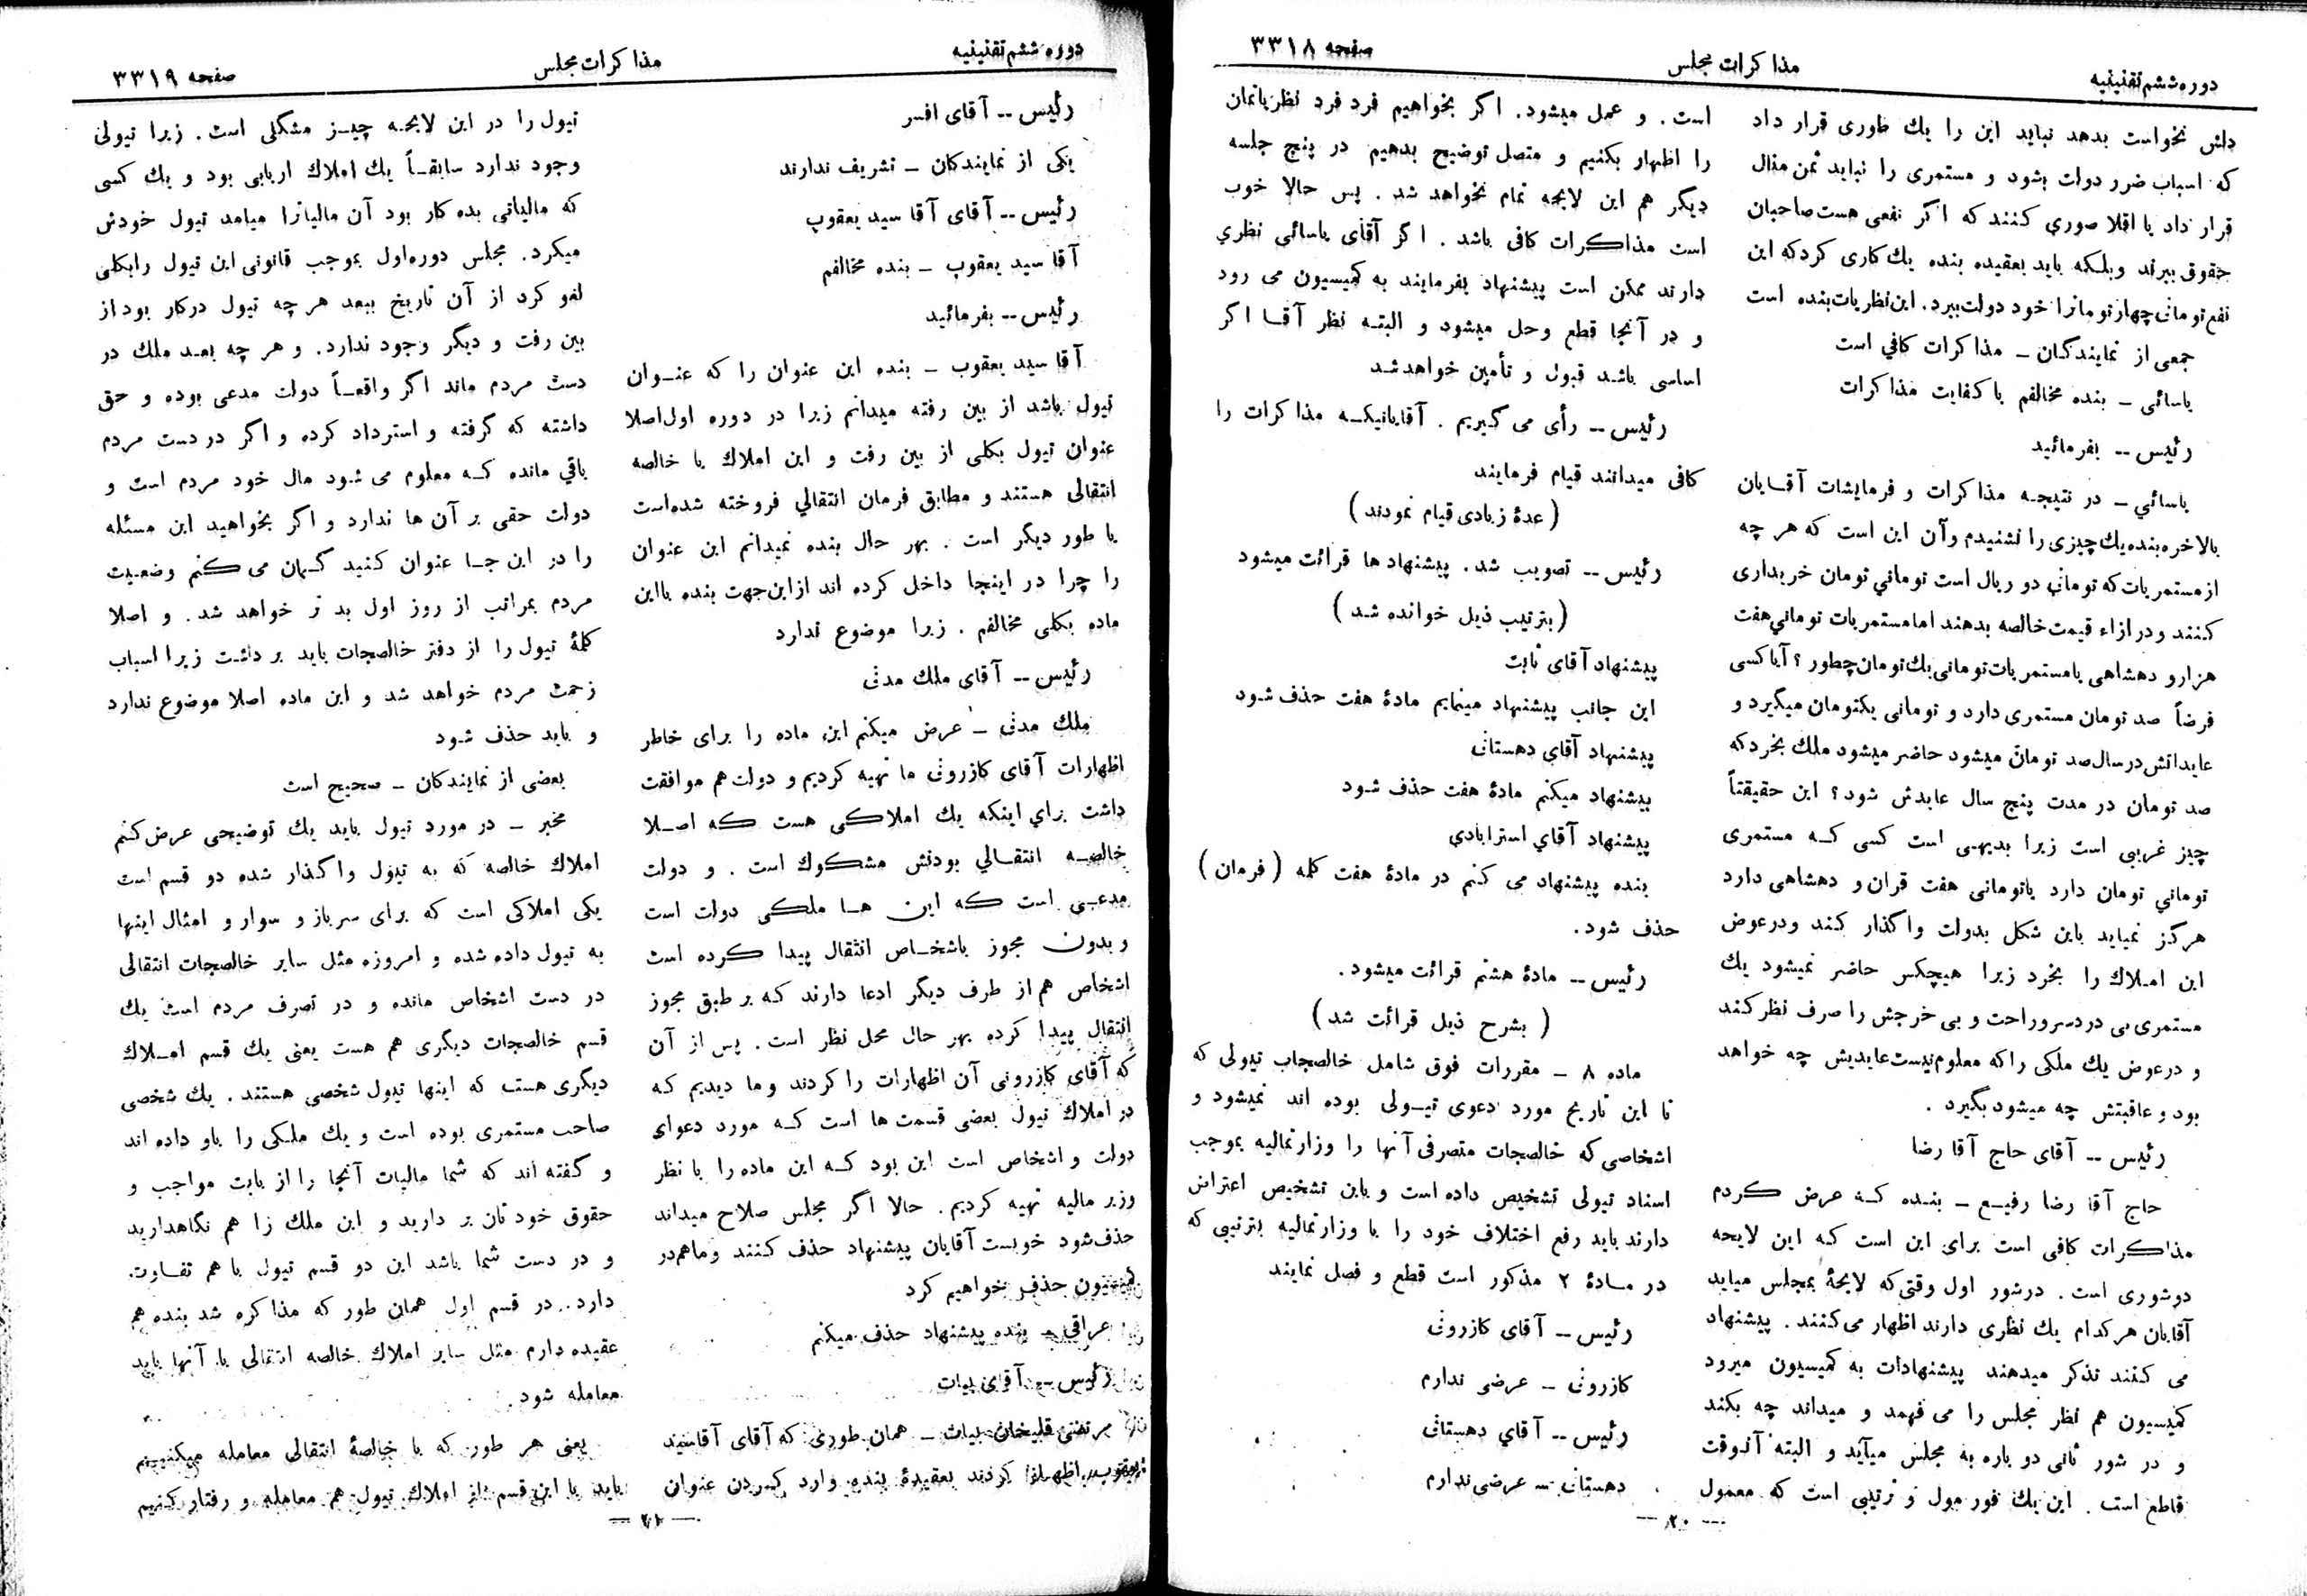 دوره ششم تقنینیه
مذاکرات مجلس
صفحه ۳۳۱۸
دلش نخواست بدهد نباید این را یك طوری قرار داد
که اسباب ضرر دولت بشود و مستمری را نباید ثمن مثال
قرار داد یا اقلا صوری کنند که اگر نفعی هست صاحبان
حقوق ببرند وبلکه باید بعقیده بنده یك کاری کرد که این
نفع تومانی چهار تومانرا خود دولت ببرد. این نظریات بنده است
جمعی از نمایندگان ـ مذاکرات کافی است
یاسائی ـ بنده مخالفم با کفایت مذاکرات
رئیس -- بفرمائید
یاسائی ـ در نتیجه مذاکرات و فرمایشات آقایان
بالاخره بنده یك چیزی را نشنیدم وآن این است که هر چه
از مستمریات که تومانی دو ریال است تومانی تومان خریداری
کنند و در ازاء قیمت خالصه بدهند اما مستمریات تومانی هفت
هزار و دهشاهی یا مستمریات تومانی یك تومان چطور؟ آیا کسی
فرضاً صد تومان مستمری دارد و تومانی یکتومان میگیرد و
عایداتش در سال صد تومان میشود حاضر میشود ملك بخرد که
صد تومان در مدت پنج سال عایدش شود؟ این حقیقتاً
چیز غریبی است زیرا بدیهی است کسی که مستمری
تومانی تومان دارد یا تومانی هفت قران و دهشاهی دارد
هرگز نمیاید باین شکل بدولت واگذار کند و در عوض
این املاك را بخرد زیرا هیچکس حاضر نمیشود یك
مستمری بی دردسر و راحت و بی خرجش را صرف نظر کند
و در عوض یك ملکی را که معلوم نیست عایدیش چه خواهد
بود و عاقبتش چه میشود بگیرد .
رئیس -- آقای حاج آقا رضا
حاج آقا رضا رفیع ـ بنده که عرض کردم
مذاکرات کافی است برای این است که این لایحه
دوشوری است . در شور اول وقتی که لایحهٔ بمجلس میاید
آقایان هر کدام یك نظری دارند اظهار می کنند . پیشنهاد
می کنند تذکر میدهند پیشنهادات به کمیسیون میرود
کمیسیون هم نظر مجلس را می فهمد و میداند چه بکند
و در شور ثانی دو باره به مجلس میآید و البته آنوقت
قاطع است . این یك فورمول و ترتیبی است که معمول
است . و عمل میشود. اگر بخواهیم فرد فرد نظریاتمان
را اظهار بکنیم و متصل توضیح بدهیم در پنج جلسه
دیگر هم این لایحه تمام نخواهد شد . پس حالا خوب
است مذاکرات کافی باشد . اگر آقای یاسائی نظری
دارند ممکن است پیشنهاد بفرمایند به کمیسیون می رود
و در آنجا قطع وحل میشود و البته نظر آقا اگر
اساسی باشد قبول و تأمین خواهد شد
رئیس -- رأی می گیریم . آقایانیکه مذاکرات را
کافی میدانند قیام فرمایند
(عدهٔ زیادی قیام نمودند)
رئیس -- تصویب شد. پیشنهادها قرائت میشود
(بترتیب ذیل خوانده شد)
پیشنهاد آقای ثابت
این جانب پیشنهاد مینمایم مادهٔ هفت حذف شود
پیشنهاد آقای دهستانی
پیشنهاد میکنم مادهٔ هفت حذف شود
پیشنهاد آقای استرابادی
بنده پیشنهاد می کنم در مادهٔ هفت کلمه (فرمان)
حذف شود.
رئیس -- مادهٔ هشتم قرائت میشود.
(بشرح ذیل قرائت شد)
ماده ۸ ـ مقررات فوق شامل خالصجات تیولی که
تا این تاریخ مورد دعوی تیولی بوده اند نمیشود و
اشخاصی که خالصجات متصرفی آنها را وزارتمالیه بموجب
اسناد تیولی تشخیص داده است و باین تشخیص اعتراض
دارند باید رفع اختلاف خود را با وزارتمالیه بترتیبی که
در مادهٔ ۲ مذکور است قطع و فصل نمایند
رئیس -- آقای کازرونی
کازرونی ـ عرضی ندارم
رئیس -- آقای دهستانی
دهستانی ـ عرضی ندارم
— ۲۰ —
دوره ششم تقنینیه
مذاکرات مجلس
صفحه ۳۳۱۹
رئیس -- آقای افسر
یکی از نمایندگان ـ تشریف ندارند
رئیس -- آقای آقا سید یعقوب
آقا سید یعقوب ـ بنده مخالفم
رئیس -- بفرمائید
آقا سید یعقوب ـ بنده این عنوان را که عنوان
تیول باشد از بین رفته میدانم زیرا در دوره اول اصلا
عنوان تیول بکلی از بین رفت و این املاك یا خالصه
انتقالی هستند و مطابق فرمان انتقالی فروخته شده است
یا طور دیگر است . بهر حال بنده نمیدانم این عنوان
را چرا در اینجا داخل کرده اند از این جهت بنده با این
ماده بکلی مخالفم . زیرا موضوع ندارد
رئیس -- آقای ملك مدنی
ملك مدنی ـ عرض میکنم این ماده را برای خاطر
اظهارات آقای کازرونی ما تهیه کردیم و دولت هم موافقت
داشت برای اینکه یك املاکی هست که اصلا
خالصه انتقالی بودنش مشکوك است . و دولت
مدعی است که این ها ملکی دولت است
و بدون مجوز باشخاص انتقال پیدا کرده است
اشخاص هم از طرف دیگر ادعا دارند که بر طبق مجوز
انتقال پیدا کرده بهر حال محل نظر است . پس از آن
که آقای کازرونی آن اظهارات را کردند وما دیدیم که
در املاك تیول بعضی قسمت ها است که مورد دعوای
دولت و اشخاص است این بود که این ماده را با نظر
وزیر مالیه تهیه کردیم. حالا اگر مجلس صلاح میداند
حذف شود خوبست آقایان پیشنهاد حذف کنند وما هم در
کمیسیون حذف خواهیم کرد
عراقی ـ بنده پیشنهاد حذف میکنم
رئیس -- آقای بیات
مرتضی قلیخان بیات ـ همان طوری که آقای آقا سید
یعقوب اظهار کردند بعقیدهٔ بنده وارد کردن عنوان
تیول را در این لایحه چیز مشکلی است. زیرا تیولی
وجود ندارد سابقاً یك املاك اربابی بود و یك کسی
که مالیاتی بده کار بود آن مالیاترا میامد تیول خودش
میکرد. مجلس دوره اول بموجب قانونی این تیول را بکلی
لغو کرد از آن تاریخ ببعد هر چه تیول در کار بود از
بین رفت و دیگر وجود ندارد. و هر چه بعد ملك در
دست مردم ماند اگر واقعاً دولت مدعی بوده و حق
داشته که گرفته و استرداد کرده و اگر در دست مردم
باقی مانده که معلوم می شود مال خود مردم است و
دولت حقی بر آن ها ندارد و اگر بخواهید این مسئله
را در این جا عنوان کنید گمان می کنم وضعیت
مردم بمراتب از روز اول بدتر خواهد شد. و اصلا
کلمهٔ تیول را از دفتر خالصجات باید برداشت زیرا اسباب
زحمت مردم خواهد شد و این ماده اصلا موضوع ندارد
و باید حذف شود
بعضی از نمایندگان ـ صحیح است
مخبر ـ در مورد تیول باید یك توضیحی عرض کنم
املاك خالصه که به تیول واگذار شده دو قسم است
یکی املاکی است که برای سرباز و سوار و امثال اینها
به تیول داده شده و امروزه مثل سایر خالصجات انتقالی
در دست اشخاص مانده و در تصرف مردم است یك
قسم خالصجات دیگری هم هست یعنی یك قسم املاك
دیگری هست که اینها تیول شخصی هستند . یك شخصی
صاحب مستمری بوده است و یك ملکی را باو داده اند
و گفته اند که شما مالیات آنجا را از بابت مواجب و
حقوق خودتان بر دارید و این ملك را هم نگاهدارید
و در دست شما باشد این دو قسم تیول با هم تفاوت
دارد. در قسم اول همان طور که مذاکره شد بنده هم
عقیده دارم مثل سایر املاك خالصه انتقالی با آنها باید
معامله شود
یعنی هر طور که با خالصهٔ انتقالی معامله میکنیم
باید با این قسم از املاك تیول هم معامله و رفتار کنیم
— ۲۱ —